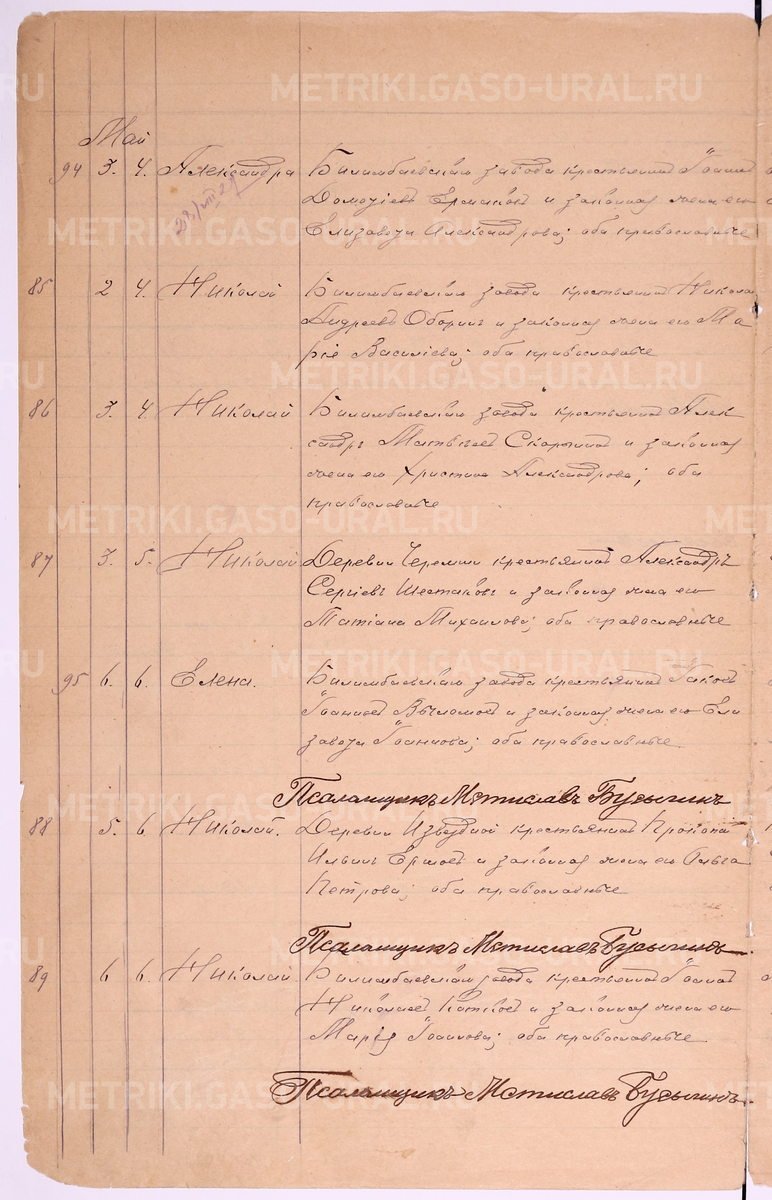 METRIKI.GASO-URAL.RU
Май
94 3. 4. Александра Билимбаевскаго завода крестьянинъ Іоаннъ
Ермаковъ и законная жена его
23/VIII 21
Елизавета Александрова; оба православные
85 2 4. Николай Билимбаевскаго завода крестьянинъ Никола
Андреевъ Оборинъ и законная жена его Ма
рія Василіева; оба православные
86 3. 4. Николай Билимбаевскаго завода крестьянинъ Алек
сандръ Матвѣевъ Скорынинъ и законная
жена его Христина Александрова; оба
православные
87 3. 5. Николай Деревни Черемши крестьянинъ Александръ
Сергіевъ Шестаковъ и законная жена его
Татіана Михаилова; оба православные
95 6. 6. Елена. Билимбаевскаго завода крестьянинъ Іаковъ
Іоанновъ и законная жена его Ели
завета Іоаннова; оба православные.
Псаломщикъ Мстиславъ Бусыгинъ
88 5. 6. Николай. Деревни Извездной крестьянинъ Прокопій
Ильинъ Ершовъ и законная жена его Ольга
Петрова; оба православные
Псаломщикъ Мстиславъ Бусыгинъ
89 6 6. Николай Билимбаевскаго завода крестьянинъ Іоаннъ
Николаевъ Катковъ и законная жена его
Марѳа Іоаннова; оба православные
Псаломщикъ Мстиславъ Бусыгинъ